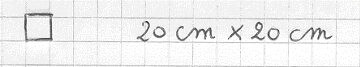 20 cm x 20 cm